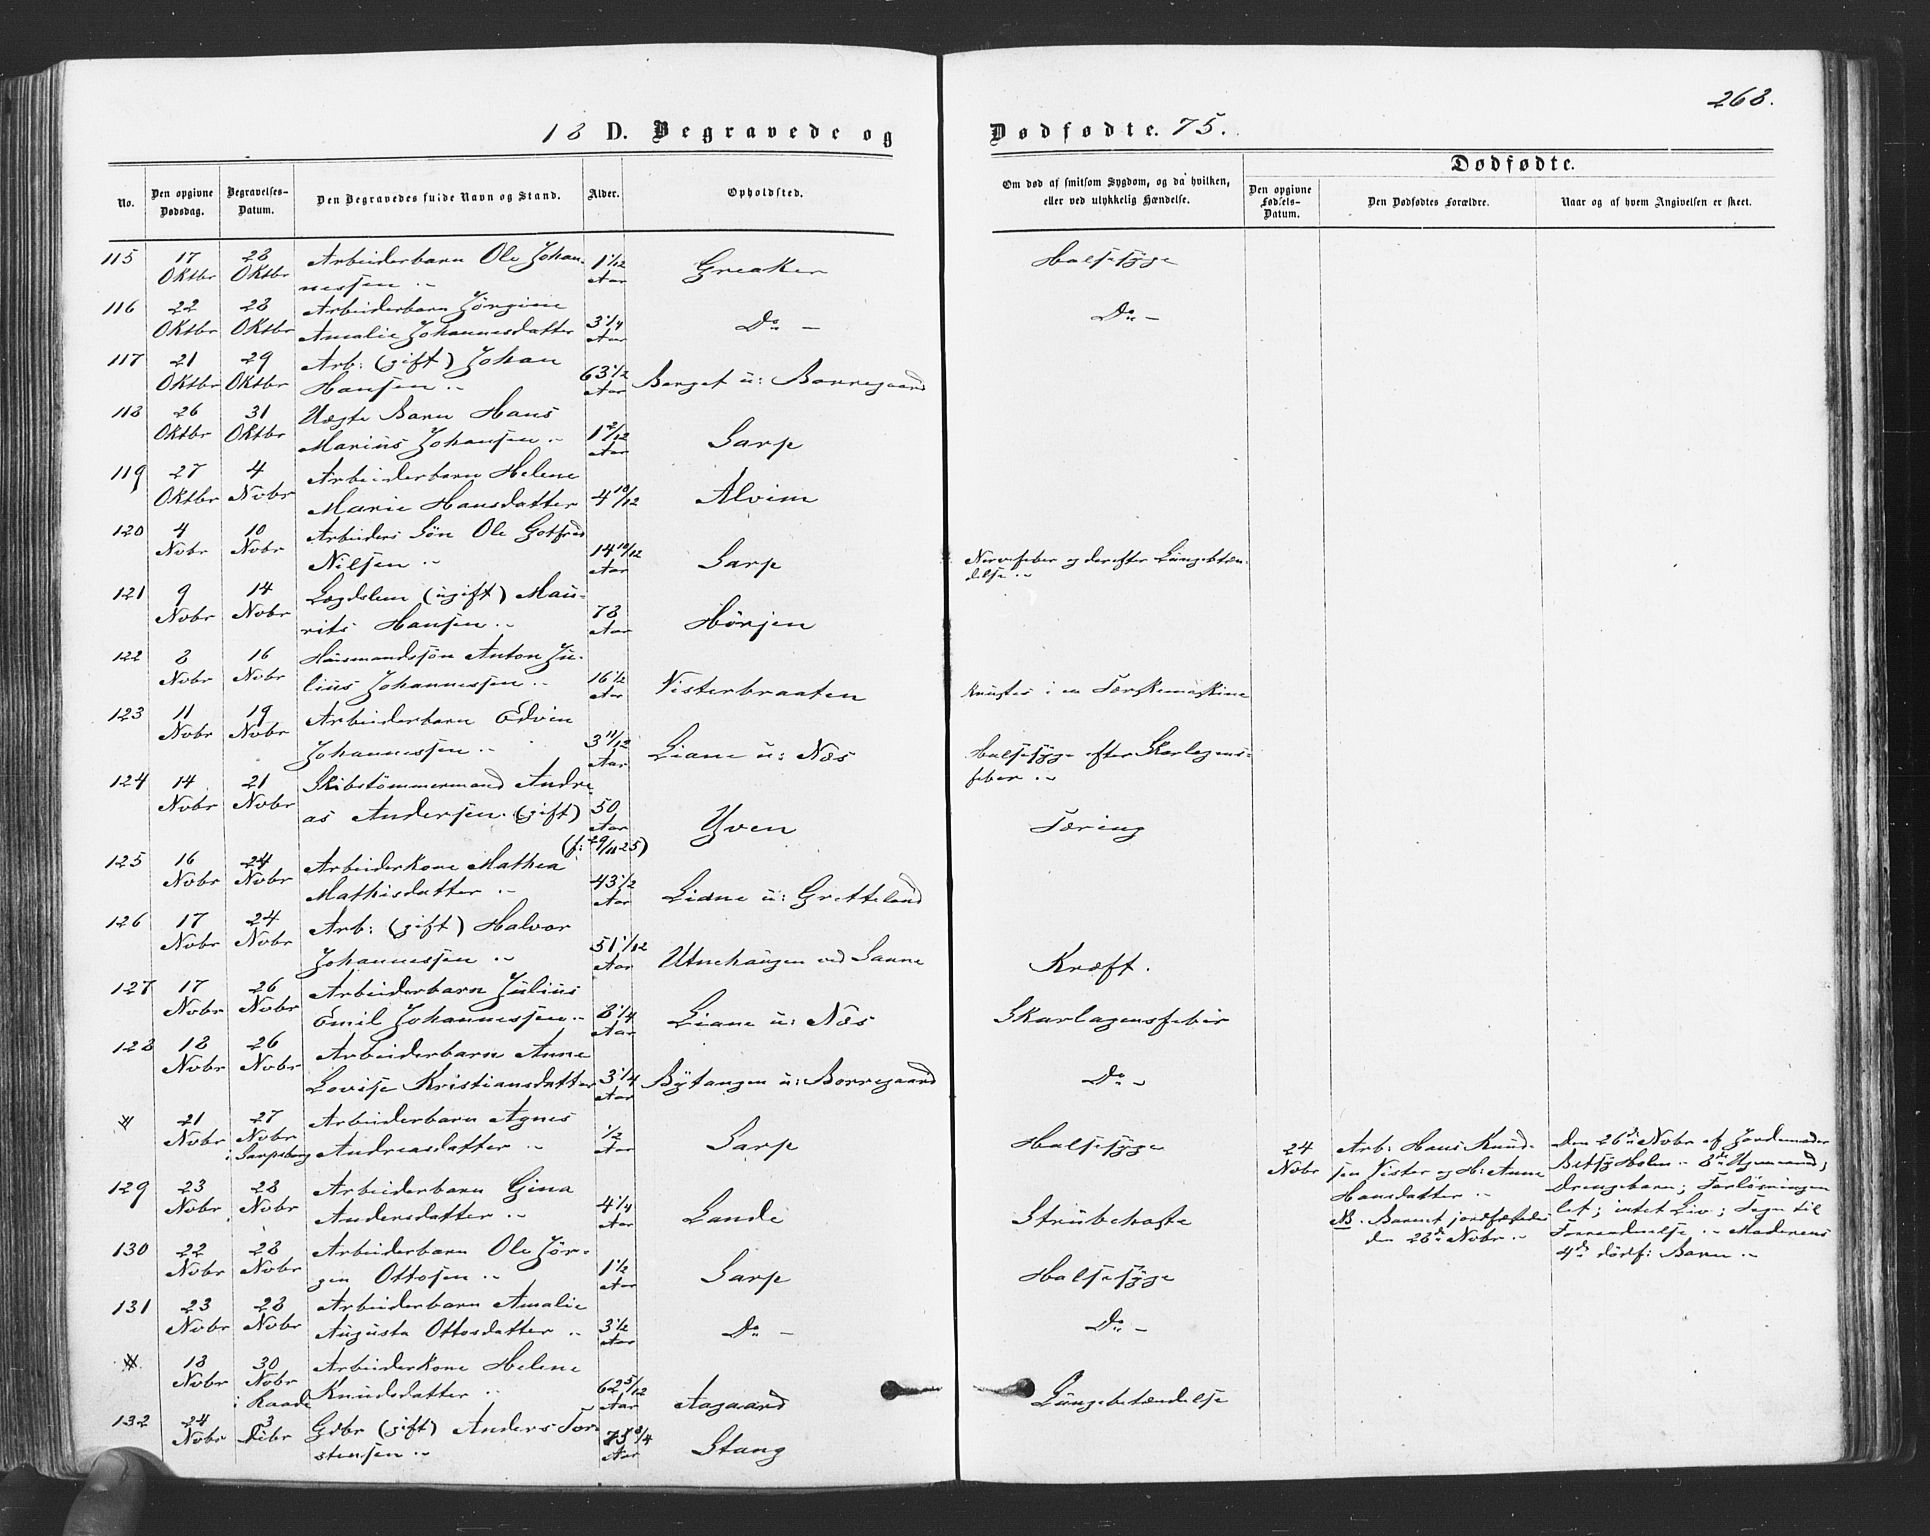 268.
18 D. Begravede og Dødfødte. 75.
No.
Den opgivne Dødsdag.
Begravelses-Datum.
Den Begravedes fulde Navn og Stand.
Alder.
Opholdsted.
Om død af smitsom Sygdom, og da hvilken,
eller ved ulykkelig Hændelse.
Dødfødte.
Den opgivne Fødsels-Datum.
Den Dødfødtes Forældre.
Naar og af hvem Angivelsen er skeet.
115 17 Oktbr 28 Oktbr Arbeiderbarn Ole Johan-
nessen 1 1/12 Aar Greaker Halssyge
116 22 Oktbr 28 Oktbr Arbeiderbarn Jørgine
Amalie Johannesdatter 3 1/4 Aar Do - Do -
117 21 Oktbr 29 Oktbr Arb: (gift) Johan
Hansen 63 1/2 Aar Berget u: Borregaard
118 26 Oktbr 31 Oktbr Uægte Barn Hans
Marius Johansen 1 2/12 Aar Sarp
119 27 Oktbr 4 Novbr Arbeiderbarn Helene
Marie Hansdatter 4 10/12 Alvim
120 4 Novbr 10 Novbr Arbeiders Søn Ole Gotfred
Nilsen 14 10/12 Aar Sarp Nervefeber og derefter Lungebtæn-
delse
121 9 Novbr 14 Novbr Lægdslem (ugift) Mau-
rits Hansen 78 Aar Hørjen
122 8 Novbr 16 Novbr Husmandssøn Anton Ju-
lius Johannessen 16 1/2 Aar Visterbraaten Knustes i en Tærskemaskine
123 11 Novbr 19 Novbr Arbeiderbarn Edvin
Johannessen 3 11/12 Aar Liane u: Næs Halssyge efter Skarlagens-
feber
124 14 Novbr 21 Novbr Skibstømmermand Andre
as Andersen (gift) 50 Aar Yven Tæring
(f: 29/11 25)
125 16 Novbr 24 Novbr Arbeiderkone Mathea
Mathisdatter 43 1/2 Aar Liane u: Gretteland
126 17 Novbr 24 Novbr Arb: (gift) Halvor
Johannessen 51 1/12 Aar Utnehaugen ved Sanne Kræft.
127 17 Novbr 26 Novbr Arbeiderbarn Julius
Emil Johannessen 8 1/4 Aar Liane u: Næs Skarlagensfeber
128 18 Novbr 26 Novbr Arbeiderbarn Anne
Lovise Kristiansdatter 3 1/4 Aar Bytangen u: Borregaard Do -
21 Novbr 27 Novbr i Sarpsborg Arbeiderbarn Agnes
Andreasdatter 1/2 Aar Sarp Halssyge
24 Novbr Arb: Hans Knud-
sen Vister og H: Anne
Hansdatter
NB. Barnet jordfæstedes
den 28de Novbr
Den 26de Novbr af Jordemoder
Betsy Holm 8de Ugemaand;
Drengebarn; Forløsningen
let; intet Liv; Tegn til
Forraadnelse Moderens
4de dødf: Barn
129 23 Novbr 28 Novbr Arbeiderbarn Gina
Andersdatter 4 1/4 Aar Lande Strubehoste
130 22 Novbr 28 Novbr Arbeiderbarn Ole Jør-
gen Ottosen 1 1/2 Aar Sarp Halssyge
131 23 Novbr 28 Novbr Arbeiderbarn Amalie
Augusta Ottosdatter 3 1/2 Aar Do - Do -
18 Novbr 30 Novbr i Raade Arbeiderkone Helene
Knudsdatter 62 5/12 Aar Aagaard Lungebetændelse
132 24 Novbr 3 Debr Gdbr (gift) Anders Tor-
stensen 75 3/4 Aar Stang